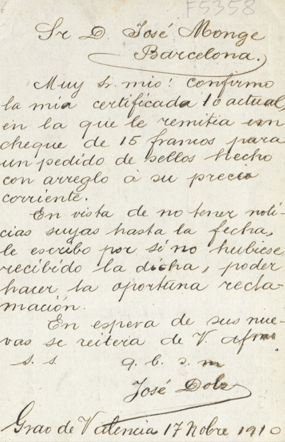 F5358
Sr D. José Monge
Barcelona.
Muy Sr. mio: confirmo
la mia certificada 10 actual,
en la que le remitia un
cheque de 15 francos para
un pedido de sellos hecho
con arreglo á su precio
corriente.
En vista de no tener noti-
cias suyas hasta la fecha,
le escribo por si no hubiese
recibido la dicha, poder
hacer la oportuna recla-
mación.
En espera de sus nue-
vas se reitera de V. afmo
s. s. q. b. s. m
José Dolz
Grao de Valencia 17 Nobre 1910